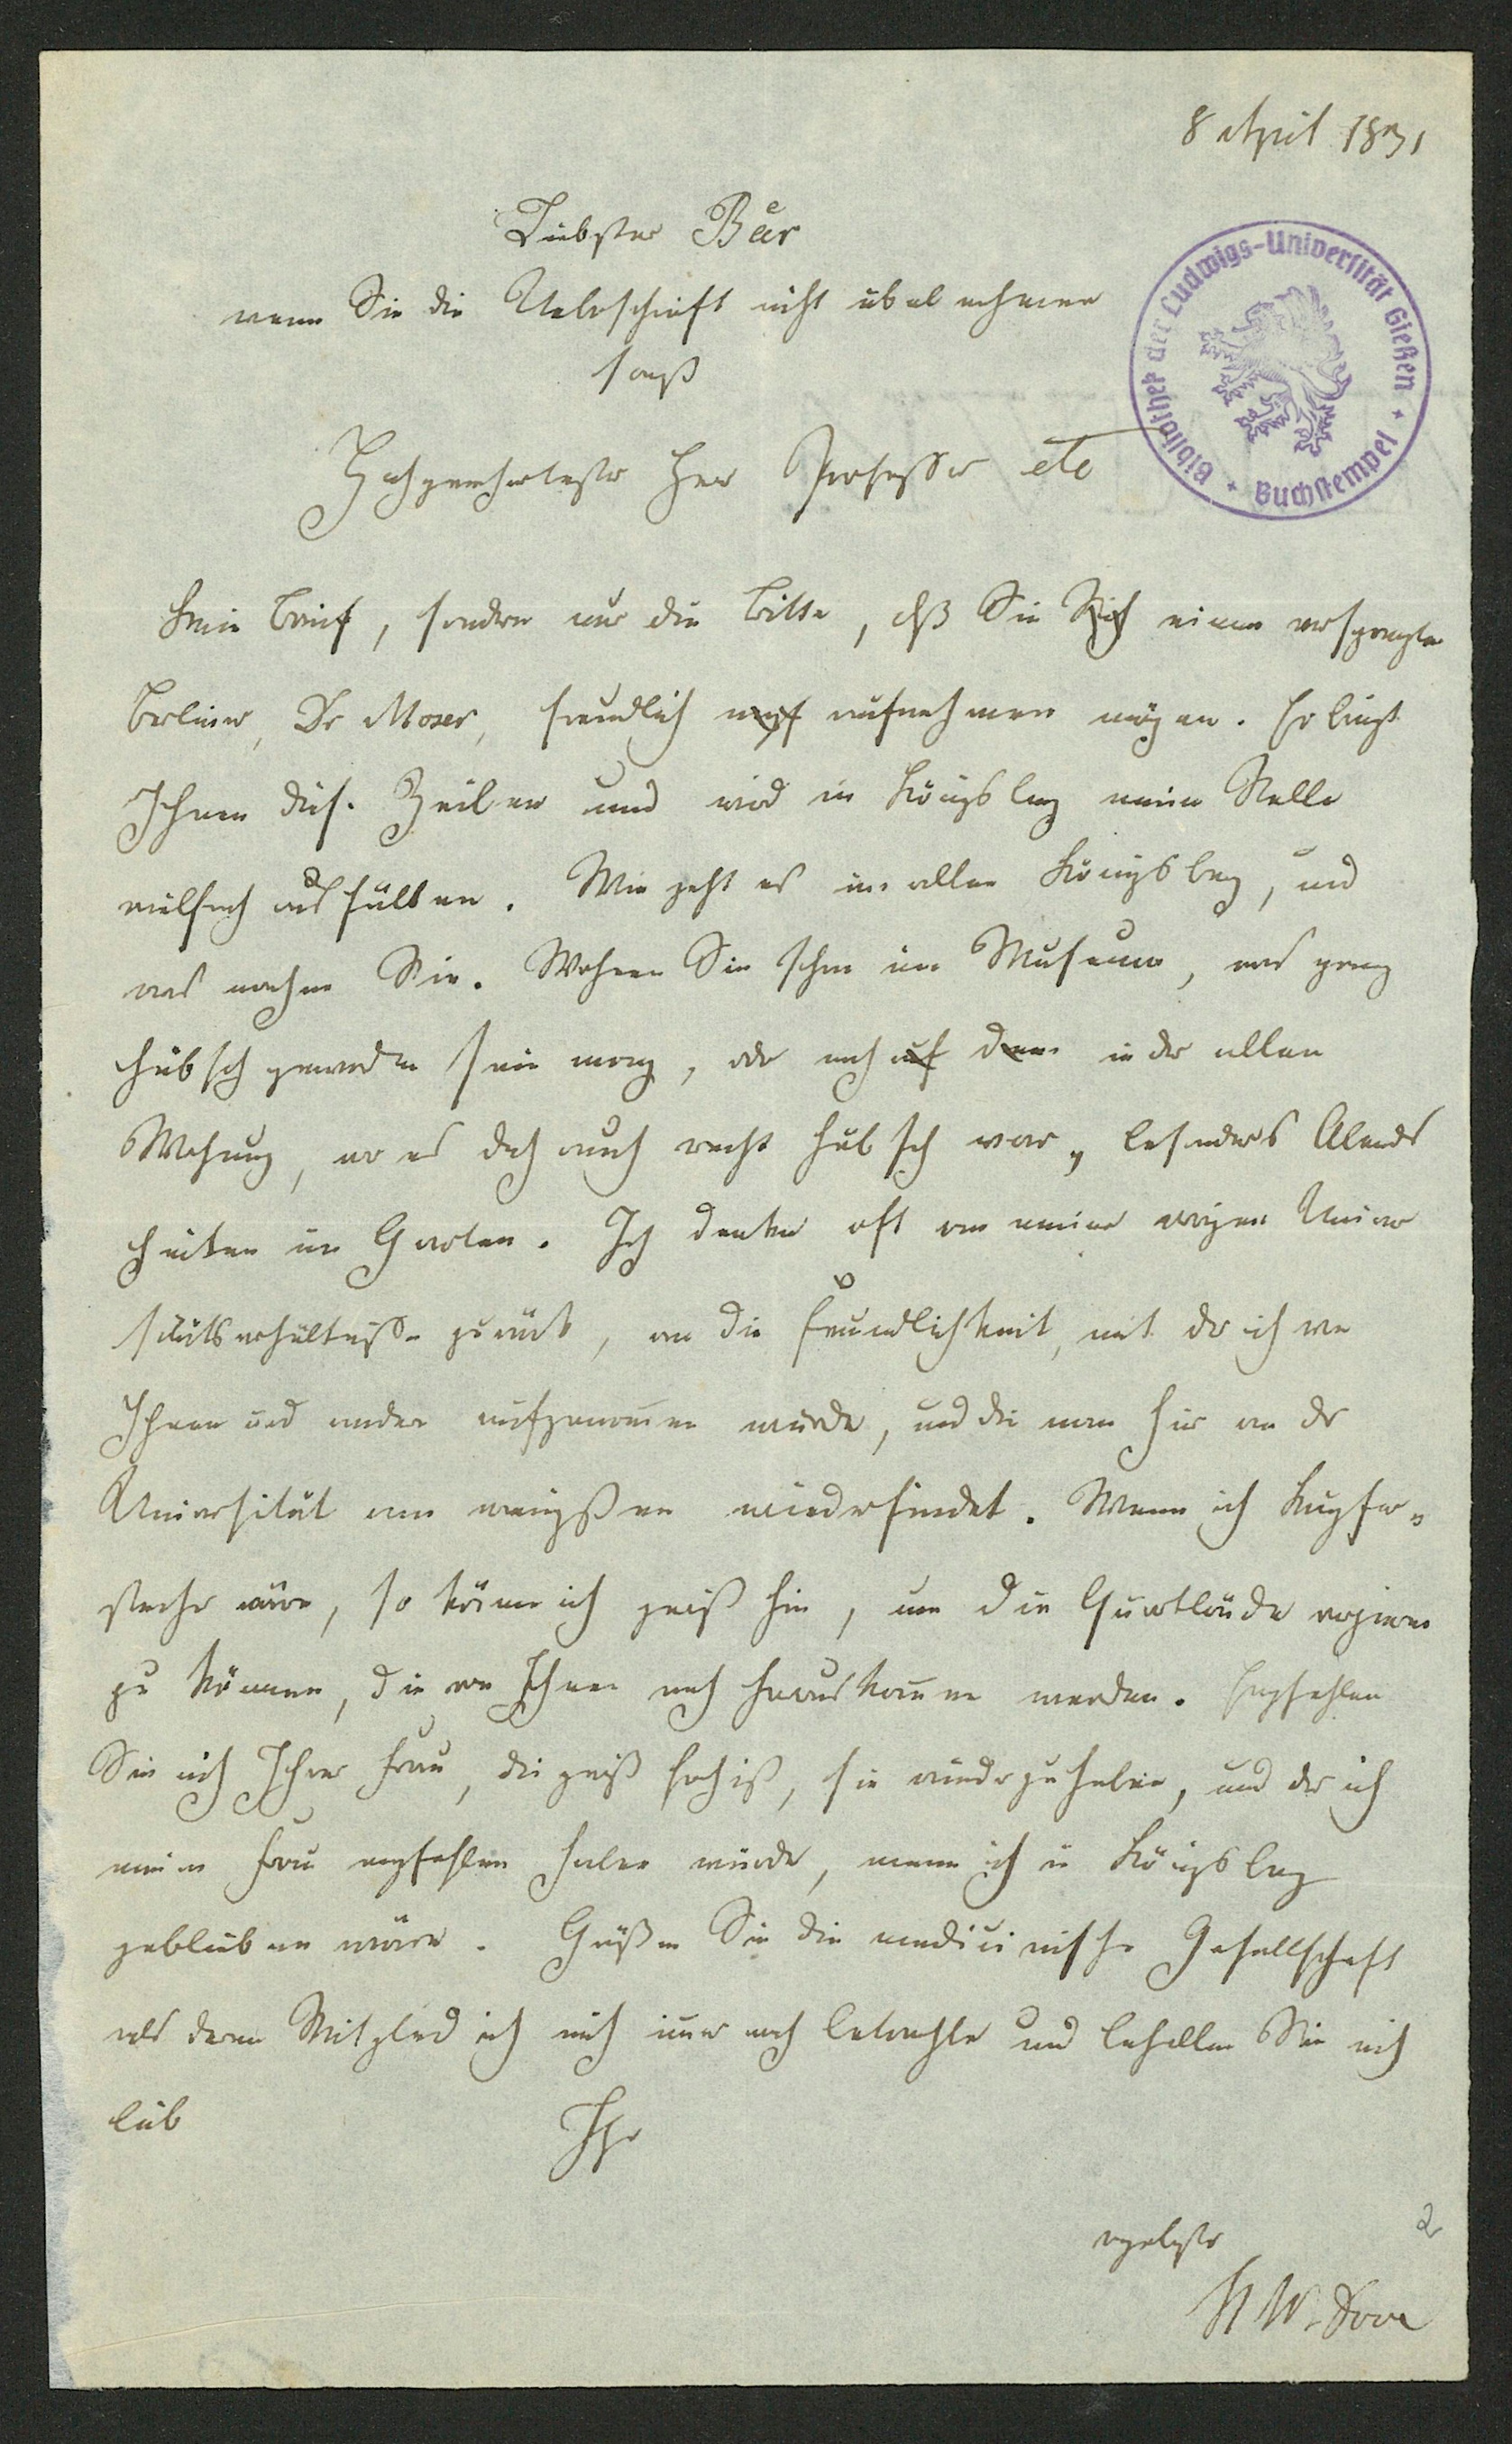 8 April 1831
Liebster Bär
wenn Sie die Ueberschrift nicht übel nehmen
sonst
Hochgeehrtester Herr Professor etc
Bibliothek der Ludwigs-Universität Gießen * Buchstempel *
Kein Brief, sondern nur die Bitte, daß Sie Sich einen versprengten
Berliner, Dr Moser, freundlich aufnehmen mögen. Er bringt
Ihnen diese Zeilen und wird in Königsberg meine Stelle
vielfach ausfüllen. Wie geht es im alten Königsberg, und
was machen Sie. Wohnen Sie schon im Museum, was ganz
hübsch geworden sein mag, oder noch auf dem in der alten
Wohnung, wo es doch auch recht hübsch war, besonders Abends
hinten im Garten. Ich denke oft an meine vorigen Univer
sitätsverhältnisse zurück, an die Freundlichkeit, mit der ich von
Ihnen und andern aufgenommen wurde, und die man hier an der
Universität am wenigsten wiederfindet. Wenn ich Kupfer-
stecher wäre, so käme ich gewiß hin, um die
zu können, die von Ihnen noch herauskommen werden. Empfehlen
Sie mich Ihrer Frau, die gewiß froh ist, Sie wieder zu haben, und der ich
meine Frau empfohlen haben würde, wenn ich in Königsberg
geblieben wäre. Grüßen Sie die medicinische Gesellschaft
als deren Mitglied ich mich immer noch betrachte und behalten Sie mich
lieb Ihr
ergebenster
2
H W. Dove